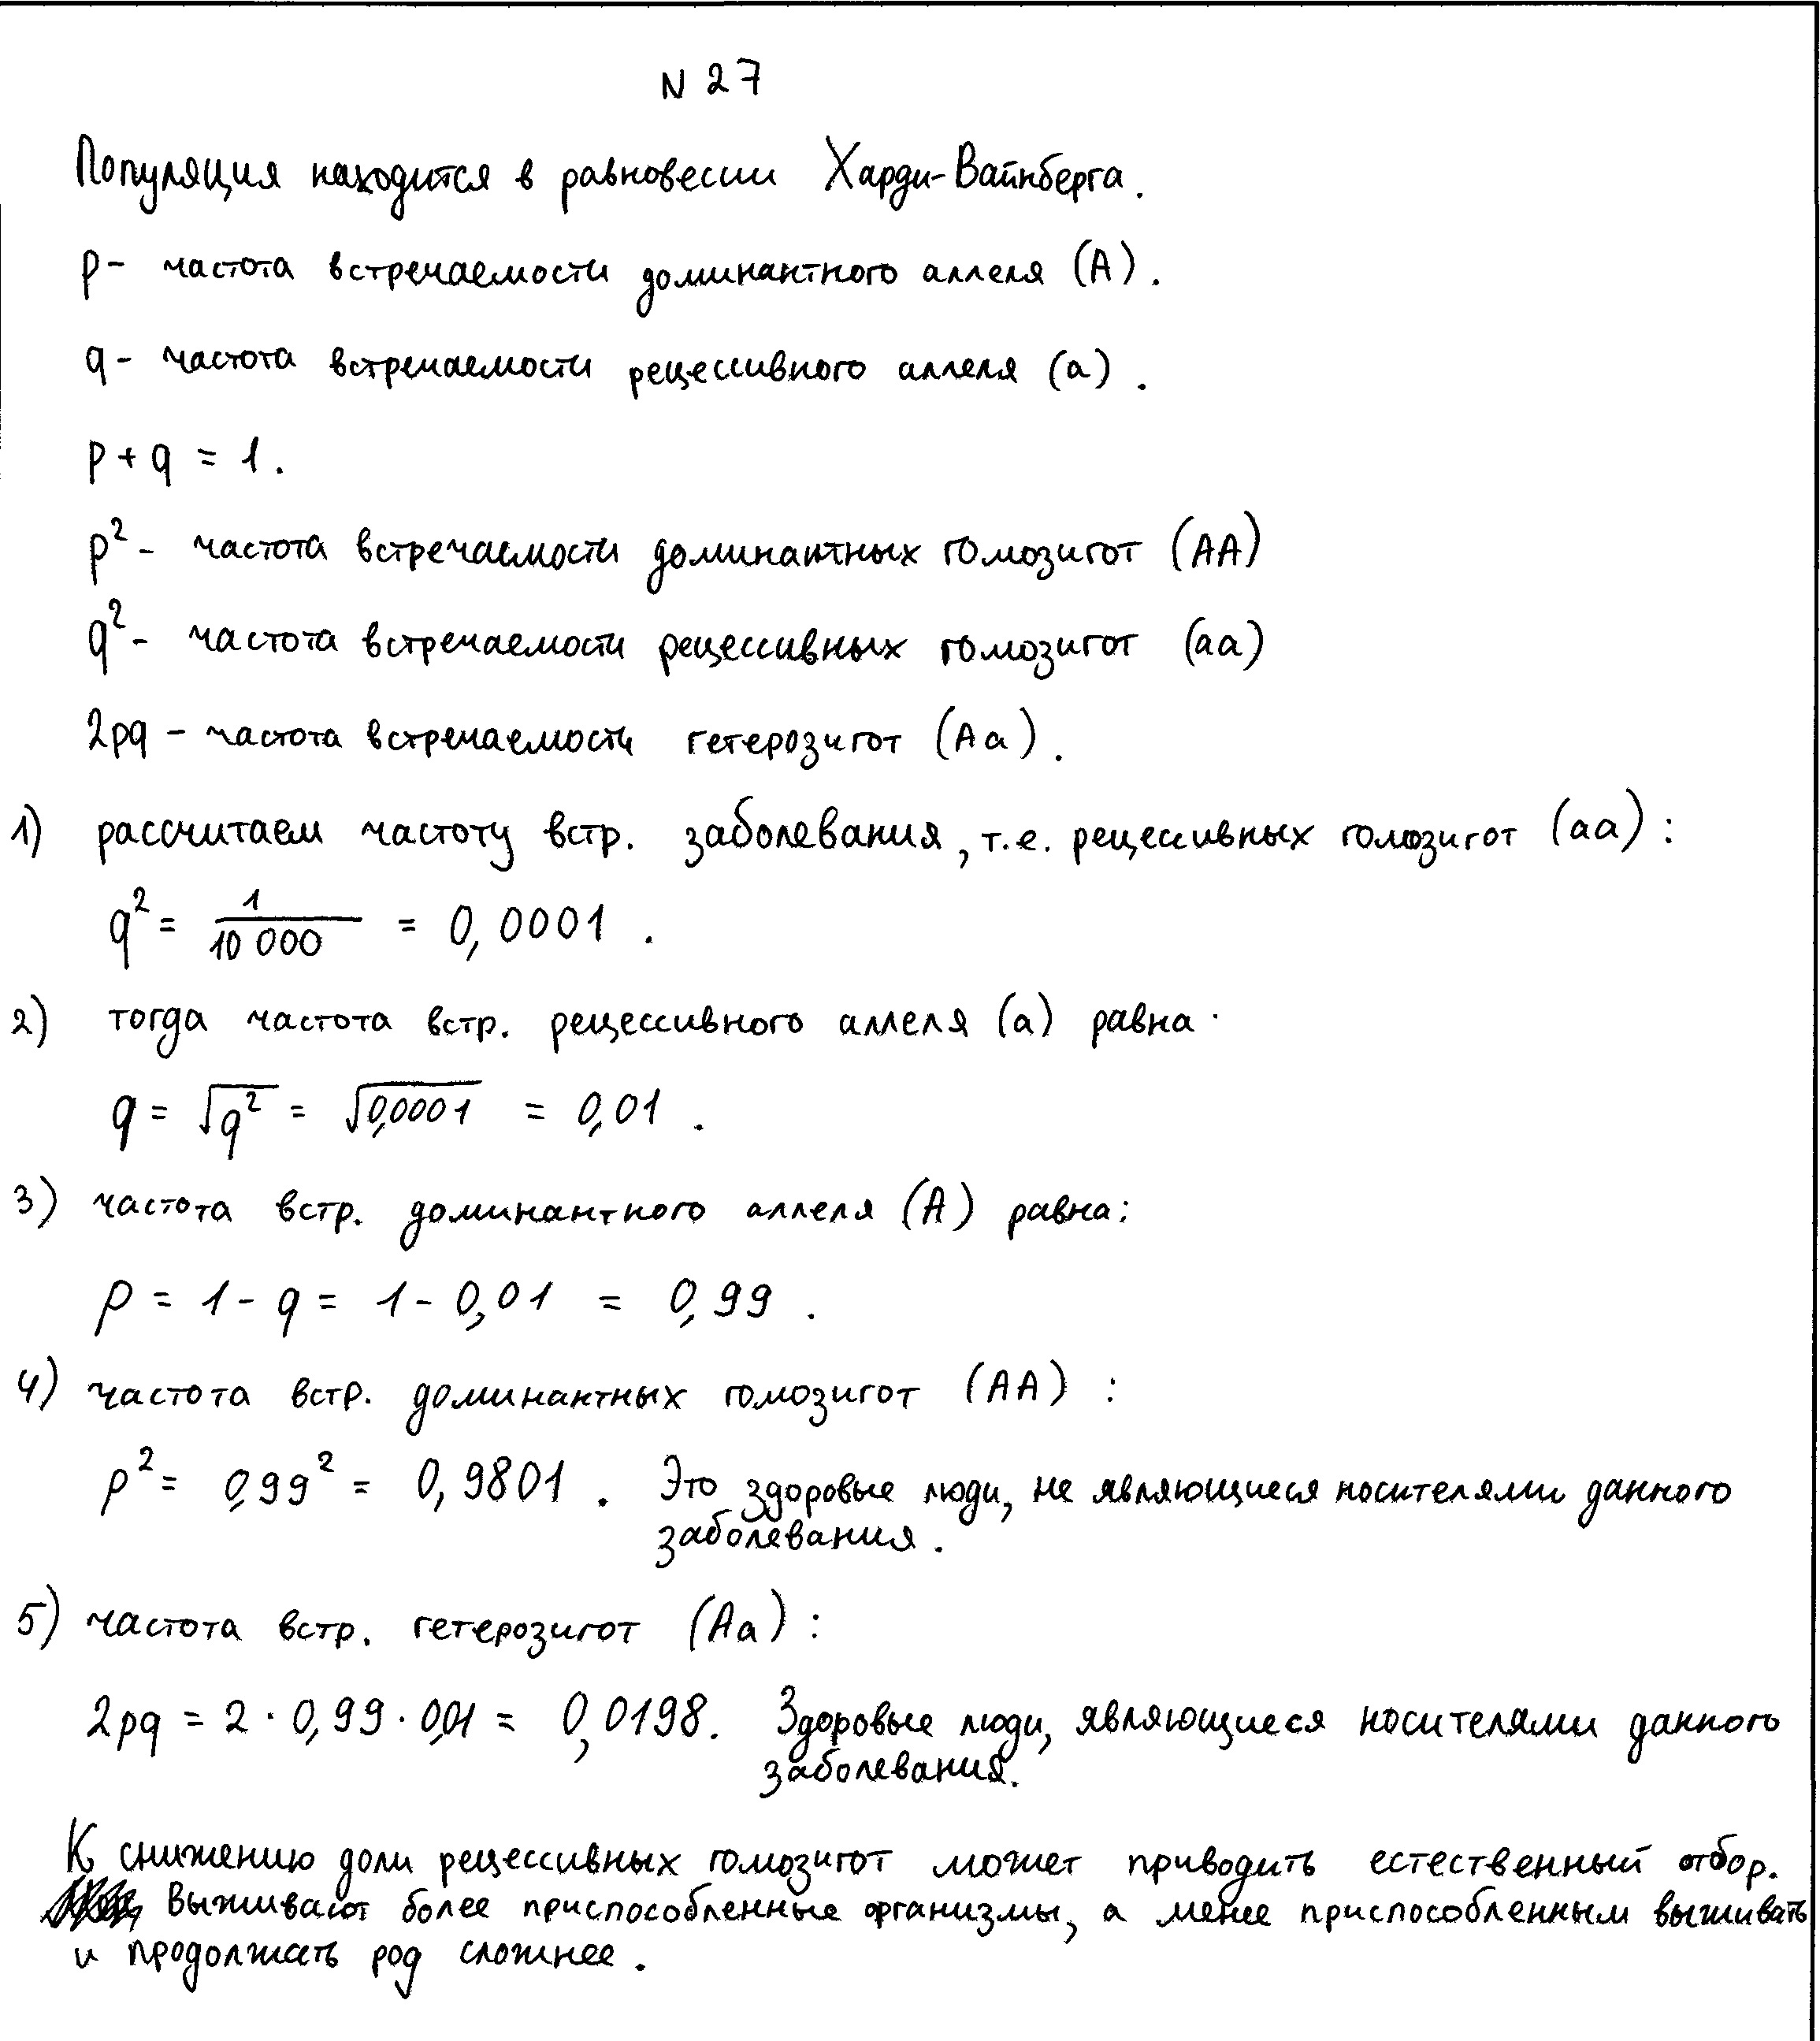 N 27
Популяция находится в равновесии Харди-Вайнберга.
p - частота встречаемости доминантного аллеля (A).
q - частота встречаемости рецессивного аллеля (a).
p + q = 1.
p² - частота встречаемости доминантных гомозигот (AA)
q² - частота встречаемости рецессивных гомозигот (aa)
2pq - частота встречаемости гетерозигот (Aa).
1) рассчитаем частоту встр. заболевания, т.е. рецессивных гомозигот (aa):
q² = 1/10 000 = 0,0001.
2) тогда частота встр. рецессивного аллеля (a) равна.
q = √q² = √0,0001 = 0,01.
3) частота встр. доминантного аллеля (A) равна:
p = 1 - q = 1 - 0,01 = 0,99.
4) частота встр. доминантных гомозигот (AA):
p² = 0,99² = 0,9801. Это здоровые люди, не являющиеся носителями данного
заболевания.
5) частота встр. гетерозигот (Aa):
2pq = 2 · 0,99 · 0,01 = 0,0198. Здоровые люди, являющиеся носителями данного
заболевания.
К снижению доли рецессивных гомозигот может приводить естественный отбор.
Выживают более приспособленные организмы, а менее приспособленным выживать
и продолжать род сложнее.